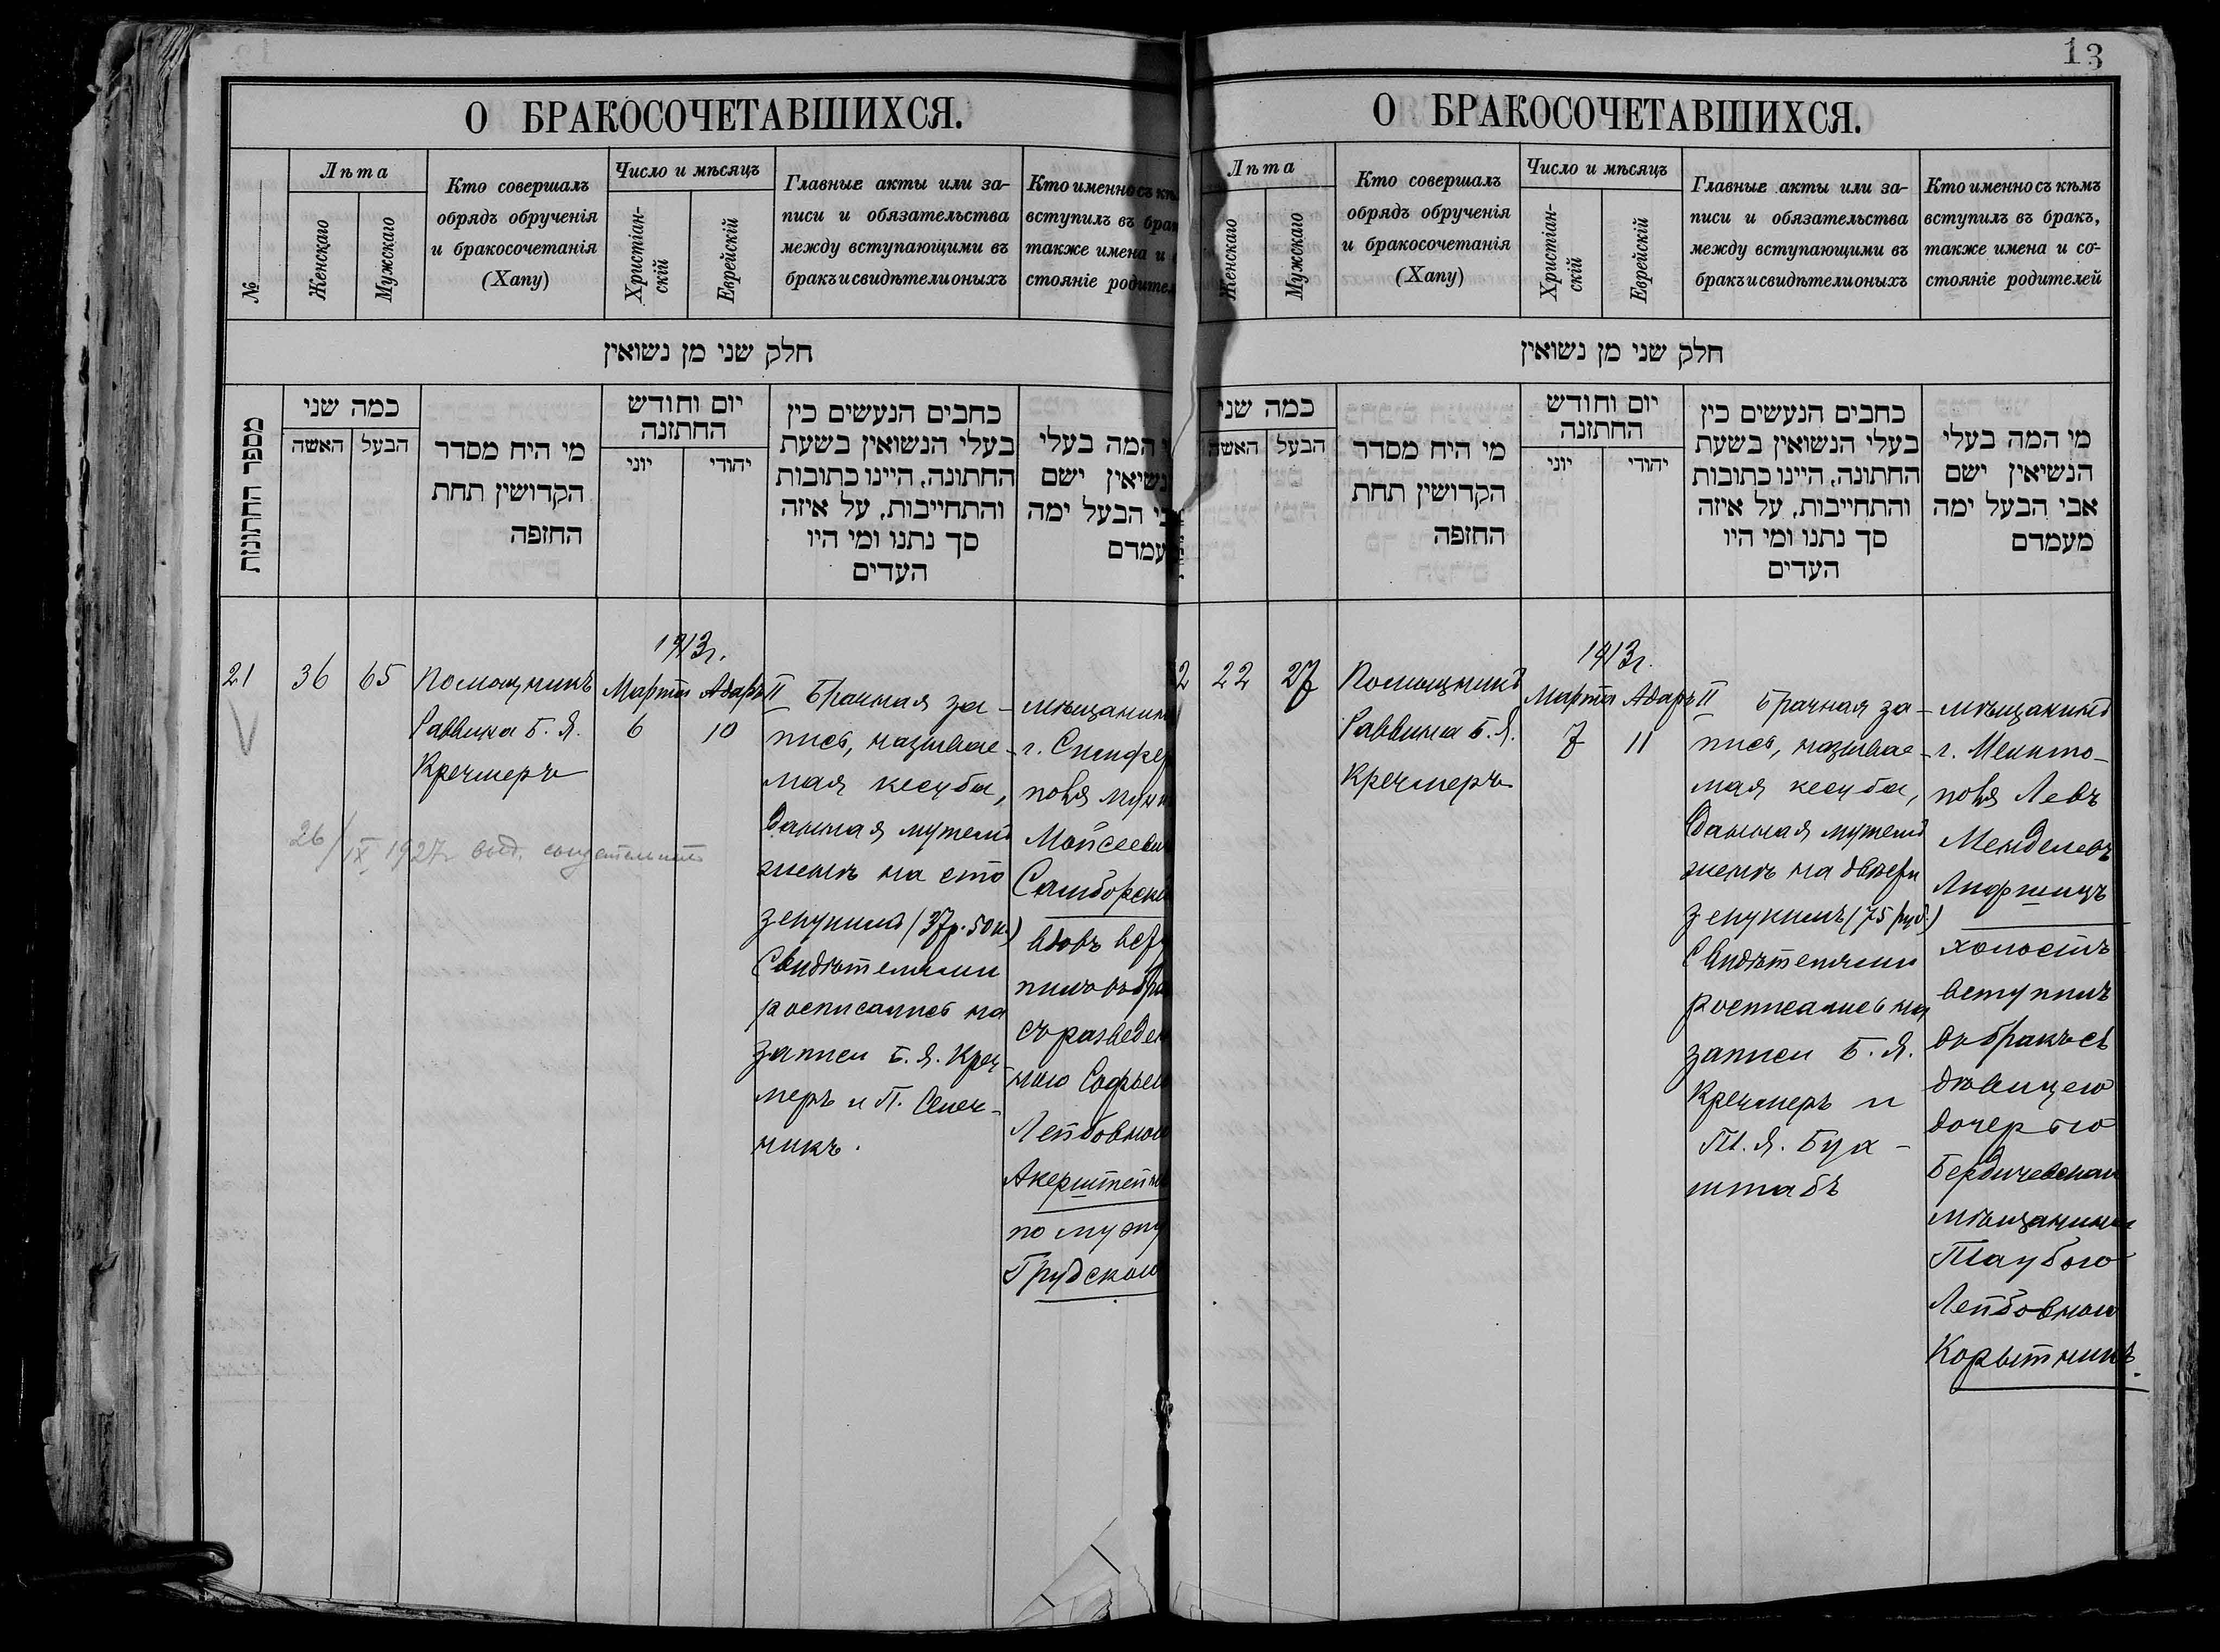 13
О БРАКОСОЧЕТАВШИХСЯ.
№
Лѣта
Женскаго
Мужскаго
Кто совершалъ
обрядъ обрученія
и бракосочетанія
(Хапу)
Число и мѣсяцъ
Христіан-
скій
Еврейскій
Главные акты или за-
писи и обязательства
между вступающими въ
бракъ и свидѣтели оныхъ
Кто именно съ кѣ
вступилъ въ бра
также имена и
стояніе родител
חלק שני מן נשואין
מספר החתונות
כמה שני
האשה
הבעל
מי היח מסדר
הקדושין תחת
החופה
יום וחודש
החתונה
יוני
יהודי
כתבים הנעשים בין
בעלי הנשואין בשעת
החתונה, היינו כתובות
והתחייבות, על איזה
סך נתנו ומי היו
העדים
המה בעלי
נשיאין ישם
בי הבעל ימה
עמדם
21
36
65
Помощникъ
Раввина Б. Я.
Кречмеръ
1913г.
Марта Адаръ II
6 10
Брачная за-
пись, называе-
мая кесуба,
данная мужемъ
женѣ на сто
зекукимъ (37р. 50к.)
Свидѣтелями
росписались на
записи Б. Я. Креч-
меръ и П. Сенеч-
никъ.
мѣщанин
г. Симфер
поля
Мойсеевич
Самборски
вдовъ всту
пилъ въ бра
съ разведен
ною Софьею
Лейбовною
Акерштейнъ
по мужу
Грудскою
26/IX 1927г. выд. свидетельство
О БРАКОСОЧЕТАВШИХСЯ.
Лѣта
Женскаго
Мужскаго
Кто совершалъ
обрядъ обрученія
и бракосочетанія
(Хапу)
Число и мѣсяцъ
Христіан-
скій
Еврейскій
Главные акты или за-
писи и обязательства
между вступающими въ
бракъ и свидѣтели оныхъ
Кто именно съ кѣмъ
вступилъ въ бракъ,
также имена и со-
стояніе родителей
חלק שני מן נשואין
כמה שני
האשה
הבעל
מי היח מסדר
הקדושין תחת
החופה
יום וחודש
החתונה
יוני
יהודי
כתבים הנעשים בין
בעלי הנשואין בשעת
החתונה, היינו כתובות
והתחייבות, על איזה
סך נתנו ומי היו
העדים
מי המה בעלי
הנשיאין ישם
אבי הבעל ימה
מעמדם
2
22
27
Помощникъ
Раввина Б. Я.
Кречмеръ
1913г.
Марта Адаръ II
7 11
Брачная за-
пись, называе-
мая кесуба,
данная мужемъ
женѣ на двѣсти
зекукимъ (75 руб.)
Свидѣтелями
росписались на
записи Б. Я.
Кречмеръ и
М. Я. Бух-
штабъ
мѣщанинъ
г. Мелито-
поля Левъ
Менделевъ
Лифшицъ
холостъ
вступилъ
въ бракъ съ
дѣвицею
дочерью
Бердичевскаго
мѣщанина
Таубою
Лейбовною
Корытникъ.